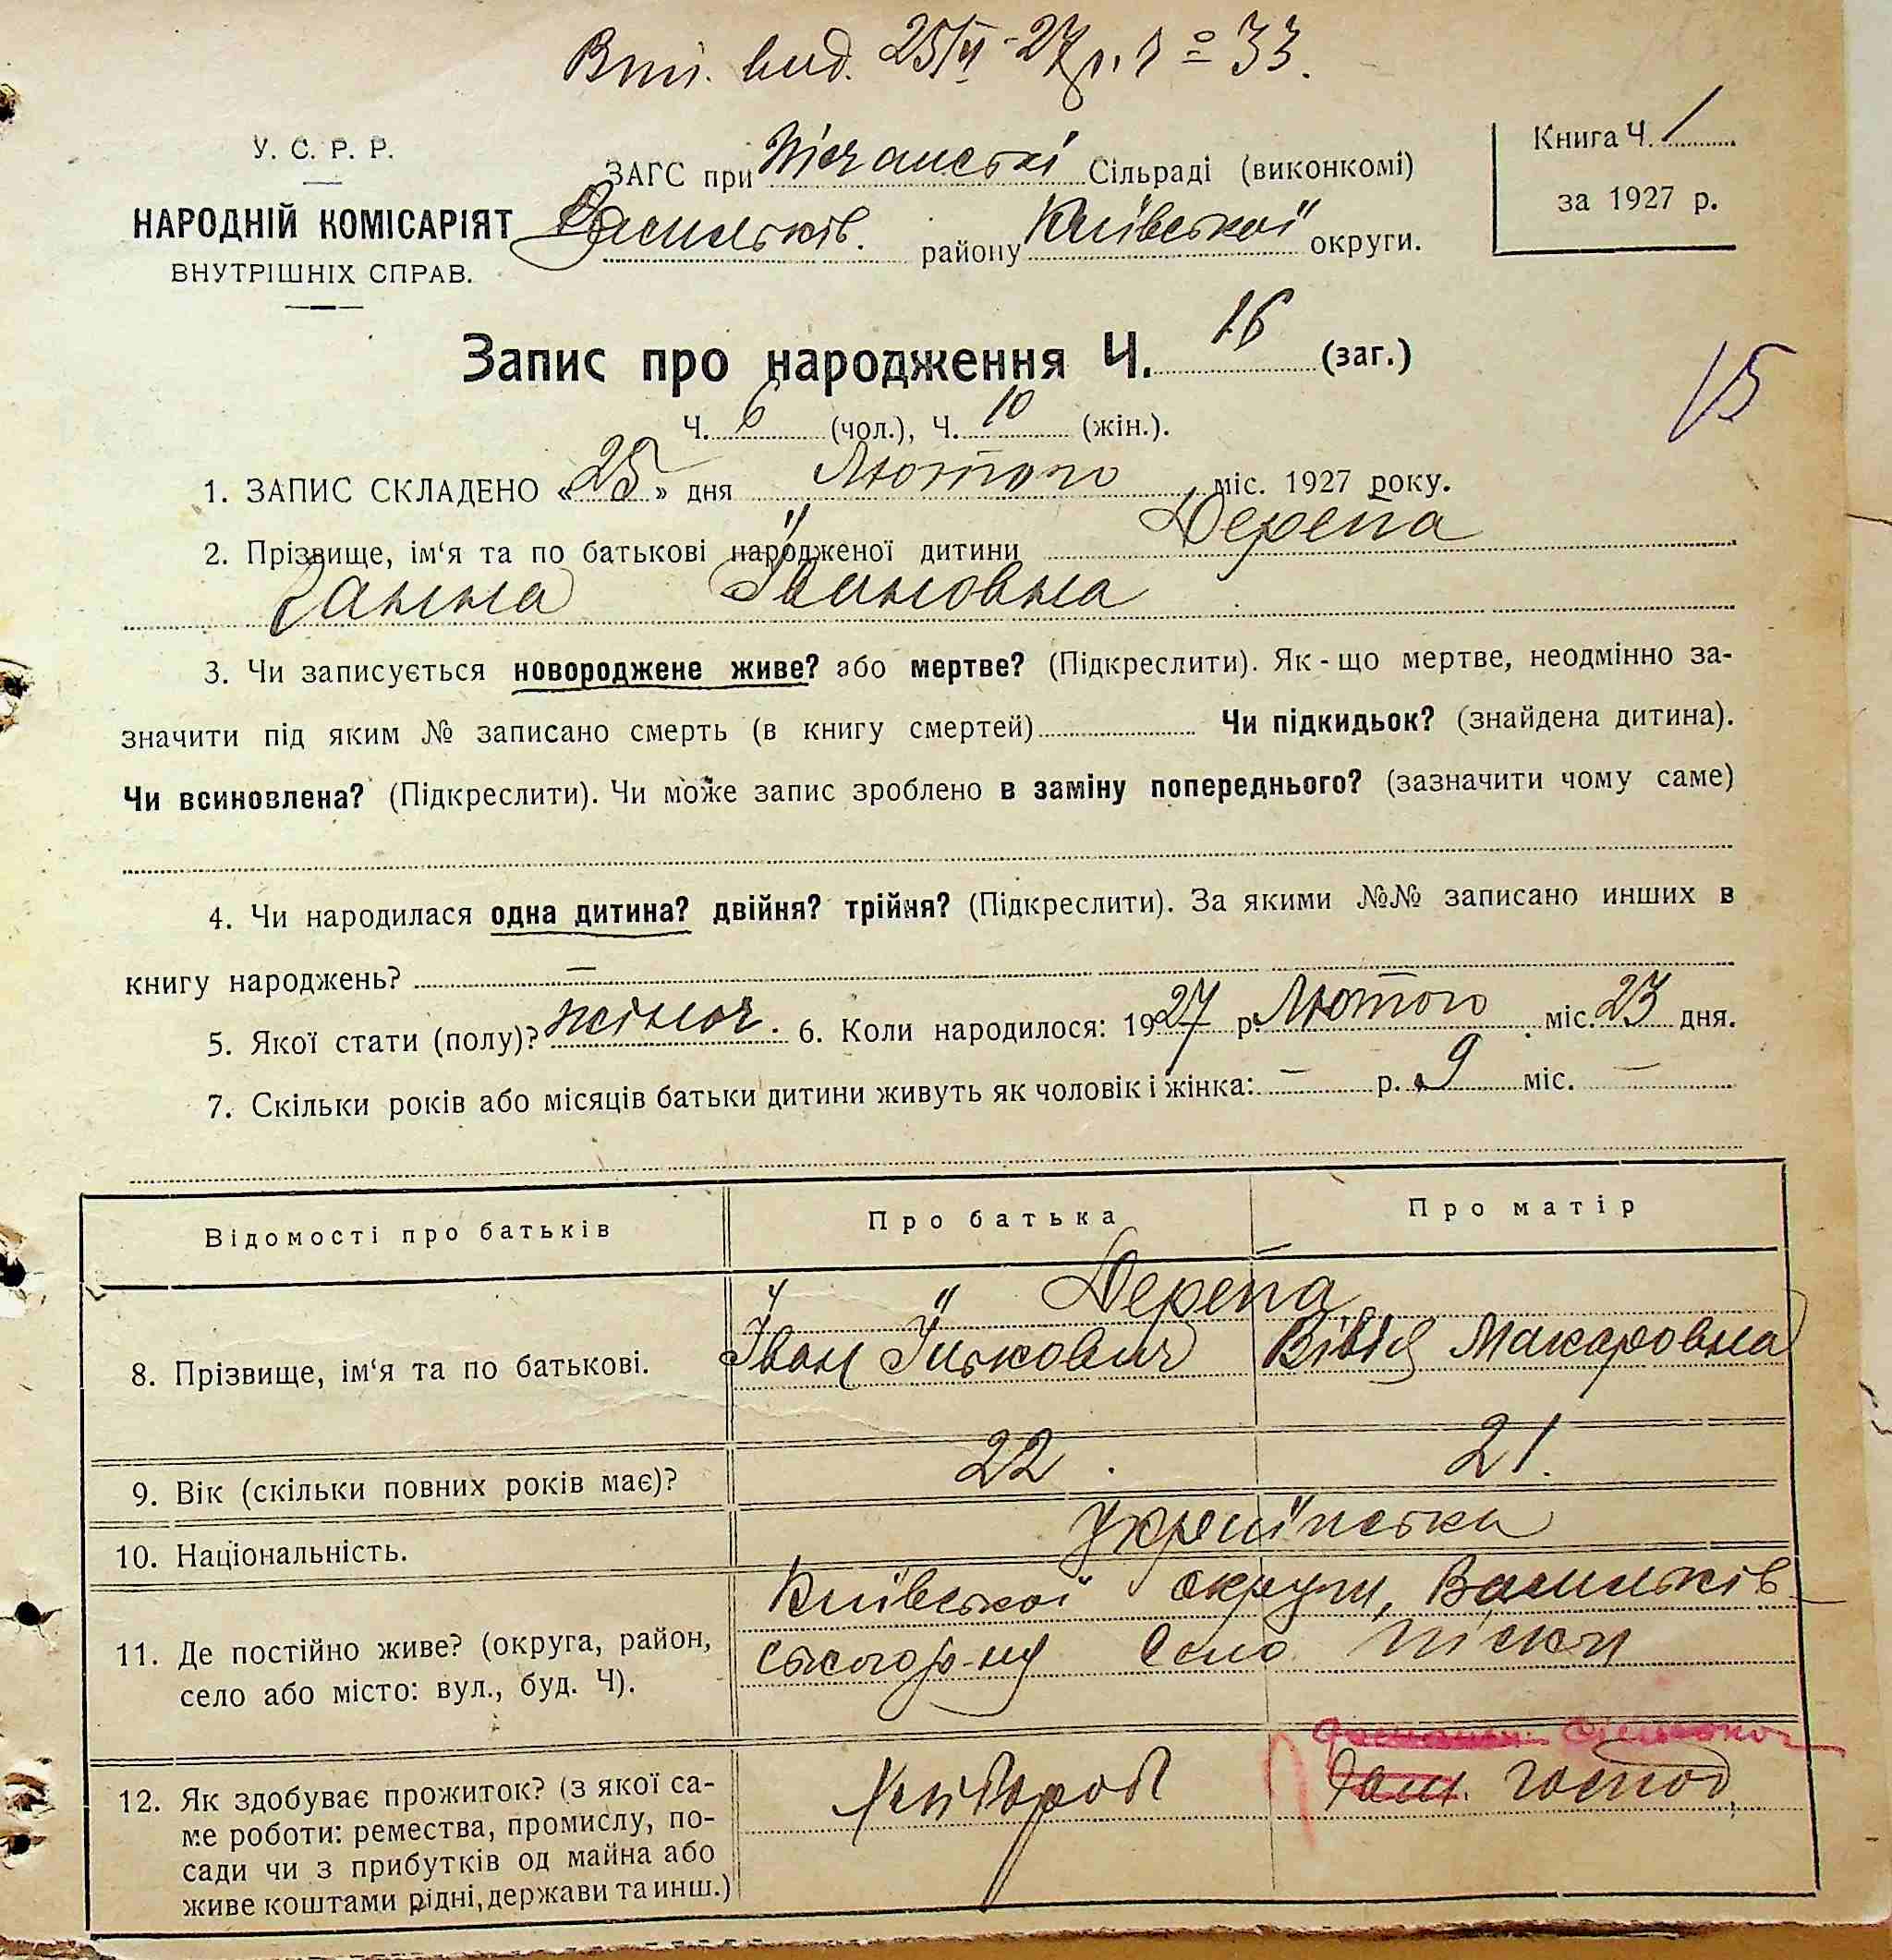 Вип. вид. 25/VI-27 р. № 33.
У. С. Р. Р.
НАРОДНІЙ КОМІСАРІЯТ
ВНУТРІШНІХ СПРАВ.
ЗАГС при Пісчанскі Сільраді (виконкомі)
Васильків. району Київської округи.
Книга Ч. 1
за 1927 р.
Запис про народження Ч. 16 (заг.)
Ч. 6 (чол.), Ч. 10 (жін.).
15
1. ЗАПИС СКЛАДЕНО «25» дня Лютого міс. 1927 року.
2. Прізвище, ім‘я та по батькові народженої дитини Дерепа
Ганна Івановна
3. Чи записується новороджене живе? або мертве? (Підкреслити). Як-що мертве, неодмінно за-
значити під яким № записано смерть (в книгу смертей) Чи підкидьок? (знайдена дитина).
Чи всиновлена? (Підкреслити). Чи може запис зроблено в заміну попереднього? (зазначити чому саме)
4. Чи народилася одна дитина? двійня? трійня? (Підкреслити). За якими №№ записано инших в
книгу народжень? —
5. Якої стати (полу)? жіноч. 6. Коли народилося: 1927 р. Лютого міс. 23 дня.
7. Скільки років або місяців батьки дитини живуть як чоловік і жінка: — р. 9 міс. —
Відомості про батьків Про батька Про матір
Дерепа
8. Прізвище, ім‘я та по батькові. Іван Їськович Вівія Макаровна
9. Вік (скільки повних років має)? 22. 21.
10. Національність. Українська
Київської округи, Васильків-
11. Де постійно живе? (округа, район, ського р-ну Село Піски
село або місто: вул., буд. Ч).
12. Як здобуває прожиток? (з якої са- Хлібороб Дом. господ,
ме роботи: ремества, промислу, по-
сади чи з прибутків од майна або
живе коштами рідні, держави та инш.)